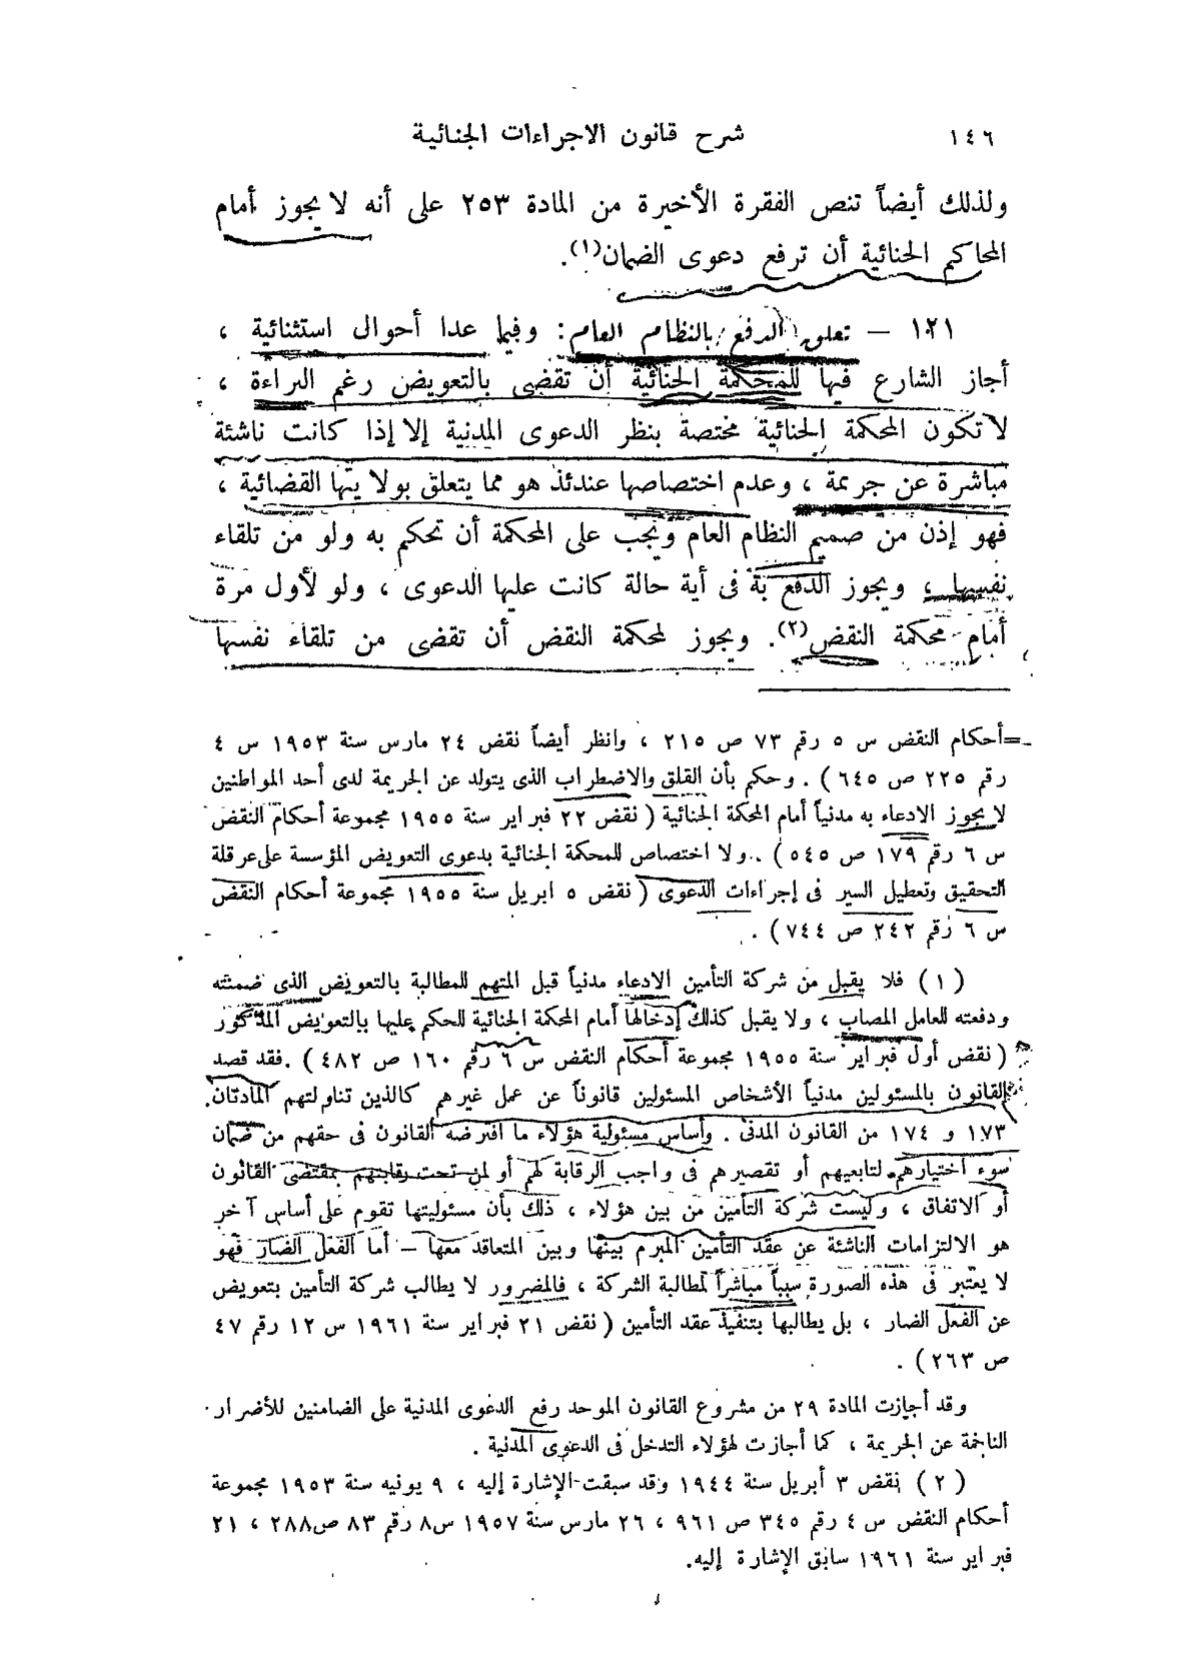 ١٤٦ شرح قانون الاجراءات الجنائية
ولذلك أيضاً تنص الفقرة الأخيرة من المادة ٢٥٣ على أنه لا يجوز أمام
المحاكم الجنائية أن ترفع دعوى الضمان(١).
١٢١ – تعلق الدفع بالنظام العام : وفيما عدا أحوال استثنائية ،
أجاز الشارع فيها للمحكمة الجنائية أن تقضى بالتعويض رغم البراءة ،
لا تكون المحكمة الجنائية مختصة بنظر الدعوى المدنية إلا إذا كانت ناشئة
مباشرة عن جريمة ، وعدم اختصاصها عندئذ هو مما يتعلق بولايتها القضائية ،
فهو إذن من صميم النظام العام ويجب على المحكمة أن تحكم به ولو من تلقاء
نفسها ، ويجوز الدفع به فى أية حالة كانت عليها الدعوى ، ولو لأول مرة
أمام محكمة النقض(٢). ويجوز لمحكمة النقض أن تقضى من تلقاء نفسها
=أحكام النقض س ٥ رقم ٧٣ ص ٢١٥ ، وانظر أيضاً نقض ٢٤ مارس سنة ١٩٥٣ س ٤
رقم ٢٢٥ ص ٦٤٥ ) . وحكم بأن القلق والاضطراب الذى يتولد عن الجريمة لدى أحد المواطنين
لا يجوز الادعاء به مدنياً أمام المحكمة الجنائية ( نقض ٢٢ فبراير سنة ١٩٥٥ مجموعة أحكام النقض
س ٦ رقم ١٧٩ ص ٥٤٥ ) . ولا اختصاص للمحكمة الجنائية بدعوى التعويض المؤسسة على عرقلة
التحقيق وتعطيل السير فى إجراءات الدعوى ( نقض ٥ ابريل سنة ١٩٥٥ مجموعة أحكام النقض
س ٦ رقم ٢٤٢ ص ٧٤٤ ) .
( ١ ) فلا يقبل من شركة التأمين الادعاء مدنياً قبل المتهم للمطالبة بالتعويض الذى ضمنته
ودفعته للعامل المصاب ، ولا يقبل كذلك إدخالها أمام المحكمة الجنائية للحكم عليها بالتعويض المذكور
( نقض أول فبراير سنة ١٩٥٥ مجموعة أحكام النقض س ٦ رقم ١٦٠ ص ٤٨٢ ) . فقد قصد
القانون بالمسئولين مدنياً الأشخاص المسئولين قانوناً عن عمل غيرهم كالذين تناولتهم المادتان
١٧٣ و ١٧٤ من القانون المدنى . وأساس مسئولية هؤلاء ما افترضه القانون فى حقهم من ضمان
سوء اختيارهم لتابعيهم أو تقصيرهم فى واجب الرقابة لهم أو لمن تحت رقابتهم بمقتضى القانون
أو الاتفاق ، وليست شركة التأمين من بين هؤلاء ، ذلك بأن مسئوليتها تقوم على أساس آخر
هو الالتزامات الناشئة عن عقد التأمين المبرم بينها وبين المتعاقد معها – أما الفعل الضار فهو
لا يعتبر فى هذه الصورة سبباً مباشراً لمطالبة الشركة ، فالمضرور لا يطالب شركة التأمين بتعويض
عن الفعل الضار ، بل يطالبها بتنفيذ عقد التأمين ( نقض ٢١ فبراير سنة ١٩٦١ س ١٢ رقم ٤٧
ص ٢٦٣ ) .
وقد أجازت المادة ٢٩ من مشروع القانون الموحد رفع الدعوى المدنية على الضامنين للأضرار
الناجمة عن الجريمة ، كما أجازت لهؤلاء التدخل فى الدعوى المدنية .
( ٢ ) نقض ٣ أبريل سنة ١٩٤٤ وقد سبقت الإشارة إليه ، ٩ يونيه سنة ١٩٥٣ مجموعة
أحكام النقض س ٤ رقم ٣٤٥ ص ٩٦١ ، ٢٦ مارس سنة ١٩٥٧ س٨ رقم ٨٣ ص٢٨٨ ، ٢١
فبراير سنة ١٩٦١ سابق الإشارة إليه.